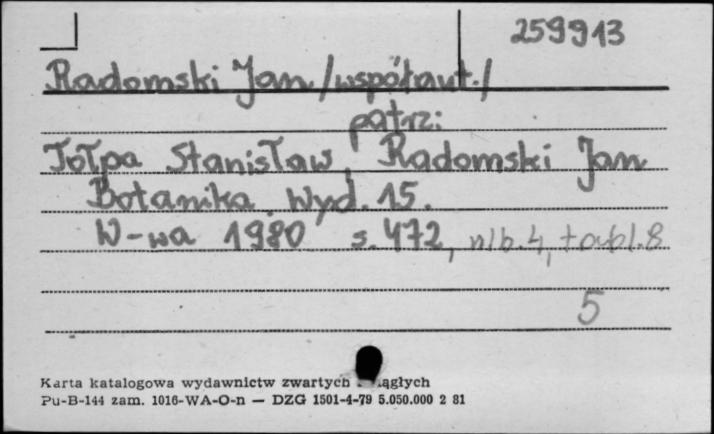 259913
Radomski Jan /współaut./
patrz:
Tołpa Stanisław, Radomski Jan
Botanika. Wyd. 15.
W-wa 1980 s. 472, nlb. 4, tabl. 8
5
Karta katalogowa wydawnictw zwartych ciągłych
Pu-B-144 zam. 1016-WA-O-n — DZG 1501-4-79 5.050.000 2 81